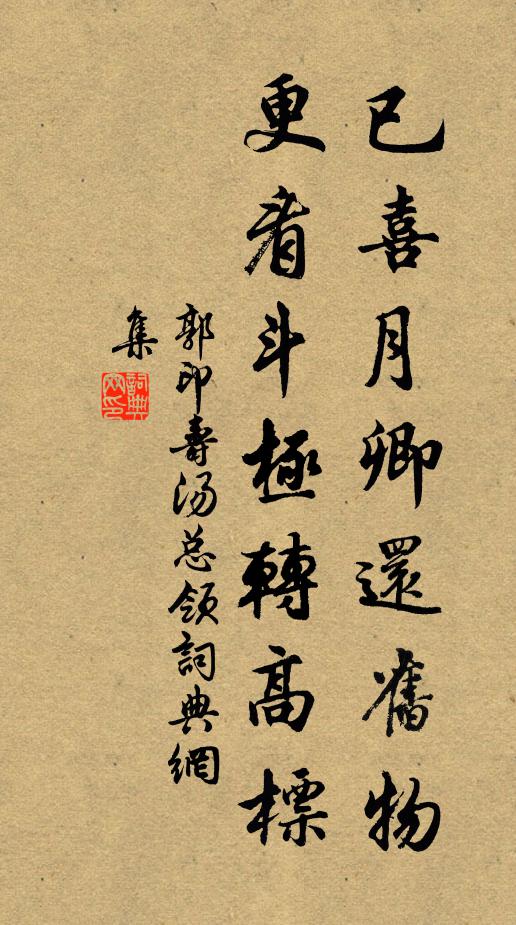 已喜月卿還舊物
更看斗極轉高標
郭印壽湯总領詞典網
集
詞典網印